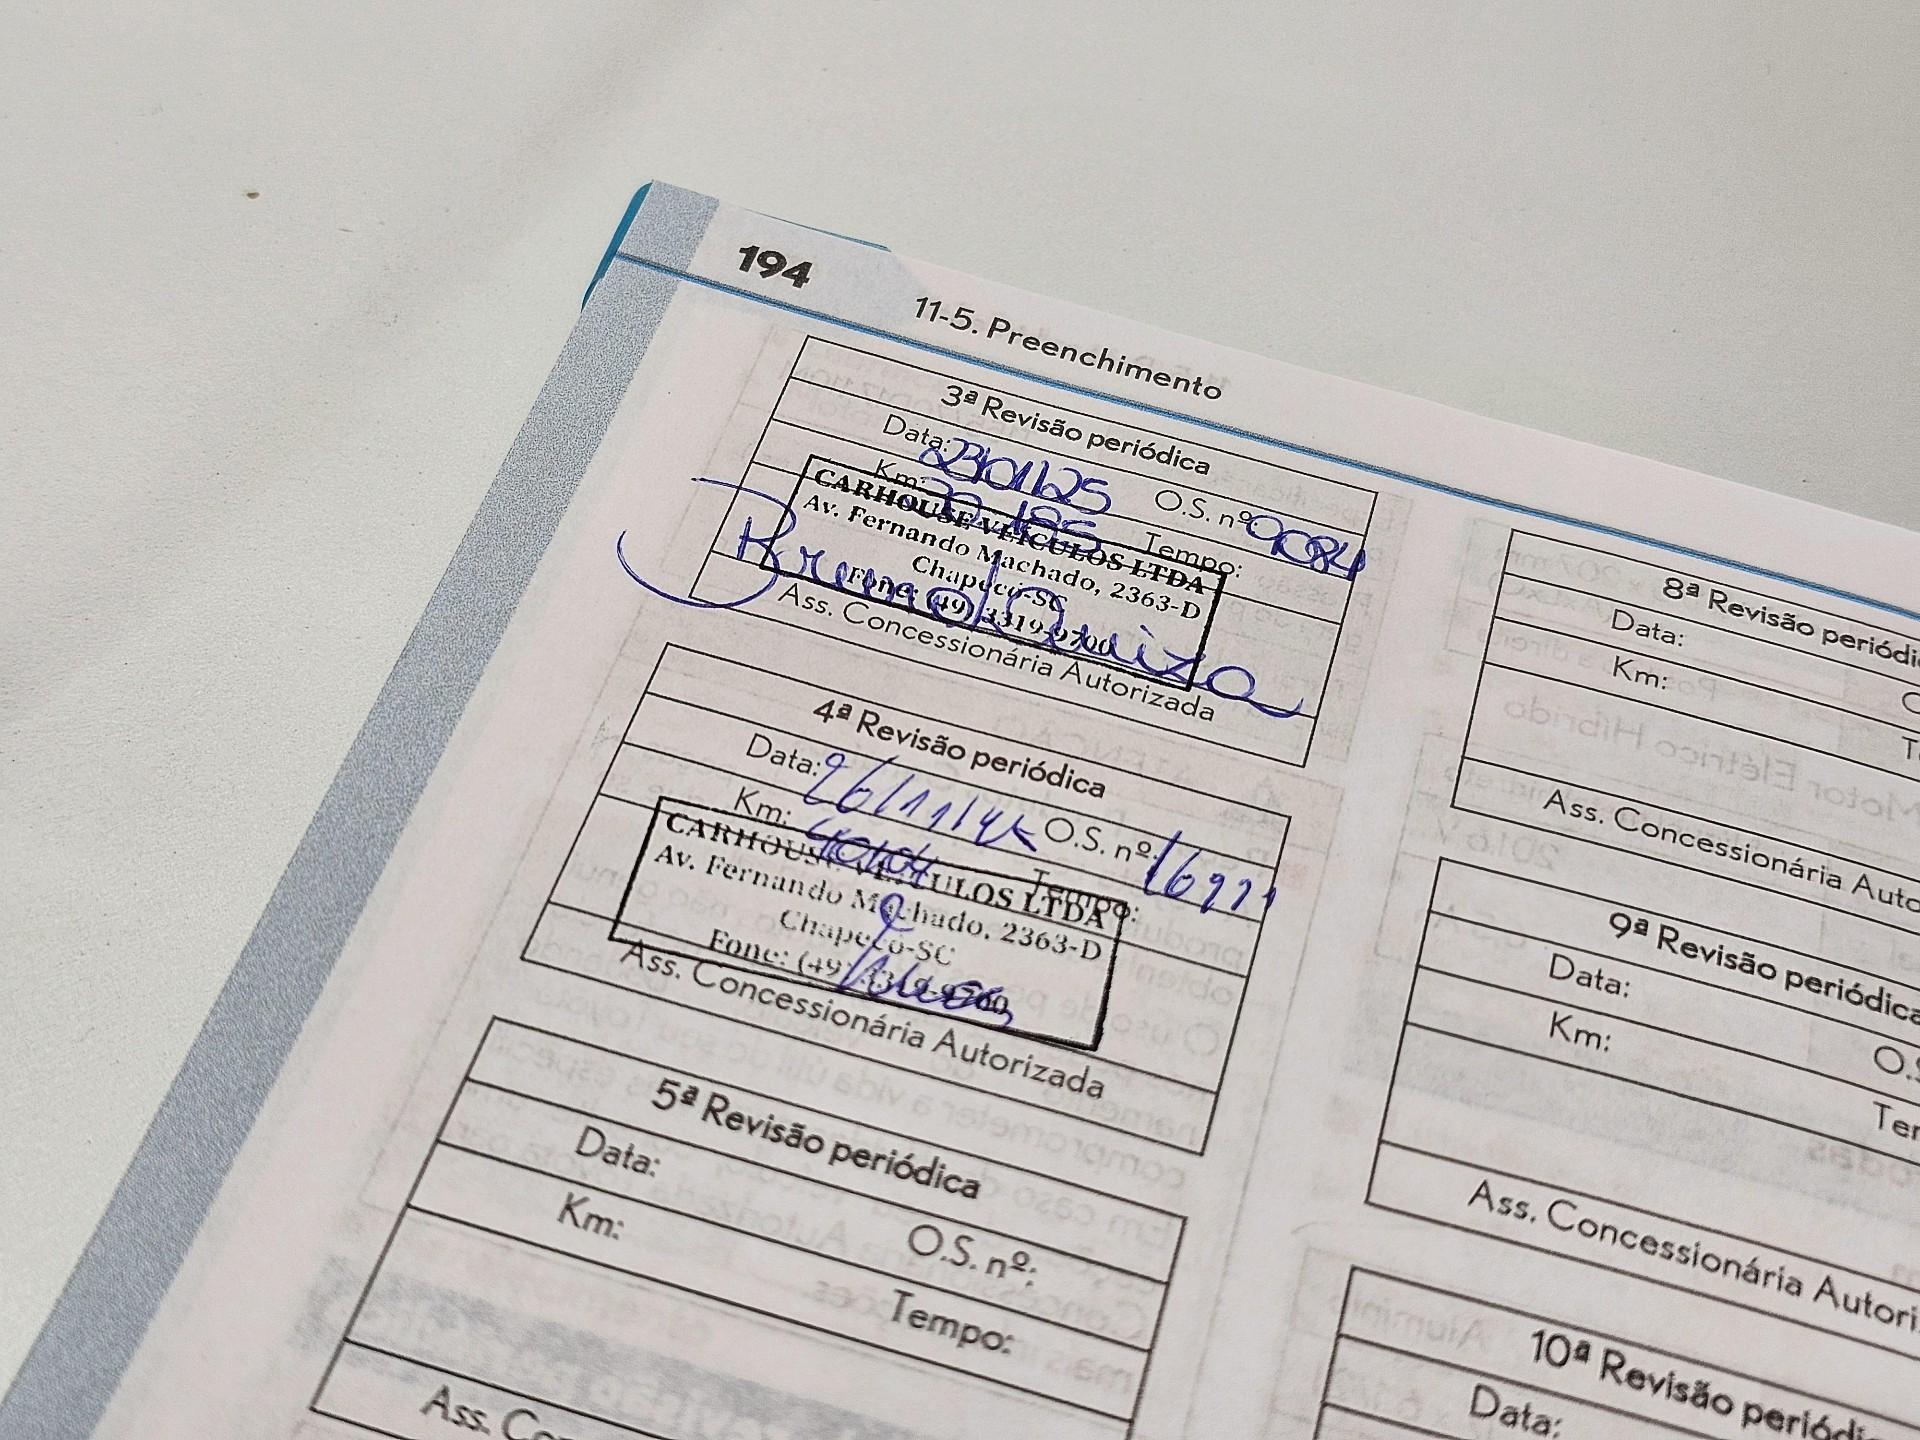 194
11-5. Preenchimento
3ª Revisão periódica
Data: 23/01/25 O.S. nº 9084
Km: Tempo:
CARHOUSE VEÍCULOS LTDA
Av. Fernando Machado, 2363-D
Chapecó-SC
Fone: (49) 3319-9700
Ass. Concessionária Autorizada
4ª Revisão periódica
Data: 26/11/ O.S. nº:
Km: 40104 Tempo:
CARHOUSE VEÍCULOS LTDA
Av. Fernando Machado, 2363-D
Chapecó-SC
Fone: (49) 3319-9700
Ass. Concessionária Autorizada
5ª Revisão periódica
Data: O.S. nº:
Km: Tempo:
Ass. Co
8ª Revisão periódi
Data:
Km:
Ass. Concessionária Auto
9ª Revisão periódica
Data: O.S
Km: Ter
Ass. Concessionária Autori
10ª Revisão periódi
Data: